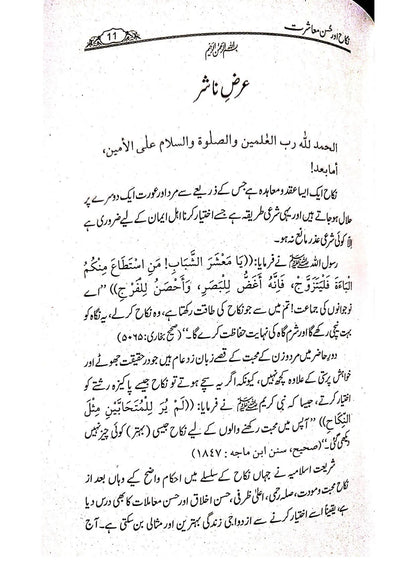 نکاح اور حُسن معاشرت
11
بسم اللہ الرحمٰن الرحیم
عرضِ ناشر
الحمد للہ رب العٰلمین والصلوۃ والسلام علی الأمین،
أما بعد!
نکاح ایک ایسا عقد و معاہدہ ہے جس کے ذریعے سے مرد اور عورت ایک دوسرے پر
حلال ہو جاتے ہیں اور یہی شرعی طریقہ ہے جسے اختیار کرنا اہل ایمان کے لیے ضروری ہے
اِلّا کوئی شرعی عذر مانع نہ ہو۔
رسول اللہ ﷺ نے فرمایا: ((يَا مَعْشَرَ الشَّبَابِ! مَنِ اسْتَطَاعَ مِنْكُمُ
الْبَاءَةَ فَلْيَتَزَوَّجْ، فَإِنَّهُ أَغَضُّ لِلْبَصَرِ، وَأَحْصَنُ لِلْفَرْجِ)) ”اے
نوجوانوں کی جماعت! تم میں سے جو نکاح کی طاقت رکھتا ہے، وہ نکاح کر لے، یہ نگاہ کو
بہت نیچی رکھے گا اور شرم گاہ کی نہایت حفاظت کرے گا۔“ (صحیح بخاری: ۵۰۶۵)
دورِ حاضر میں مرد و زن کے محبت کے قصے زبان زد عام ہیں جو درحقیقت جھوٹے اور
خواہش پرستی کے علاوہ کچھ نہیں، کیونکہ اگر یہ سچے ہوتے تو نکاح جیسے پاکیزہ رشتے کو
اختیار کرتے، جیسا کہ نبی کریم ﷺ نے فرمایا: ((لَمْ يُرَ لِلْمُتَحَابَّيْنِ مِثْلَ
النِّكَاحِ)) ”آپس میں محبت رکھنے والوں کے لیے نکاح جیسی (بہتر) کوئی چیز نہیں
دیکھی گئی۔“ (صحیح، سنن ابن ماجه: ۱۸۴۷)
شریعت اسلامیہ نے جہاں نکاح کے سلسلے میں احکام واضح کیے وہاں بعد از
نکاح محبت و مودت، صلہ رحمی، اعلیٰ ظرفی، حسن اخلاق اور حسن معاملات کا بھی درس دیا
ہے، یقیناً اسے اختیار کرنے سے ازدواجی زندگی بہترین اور مثالی بن سکتی ہے۔ آج